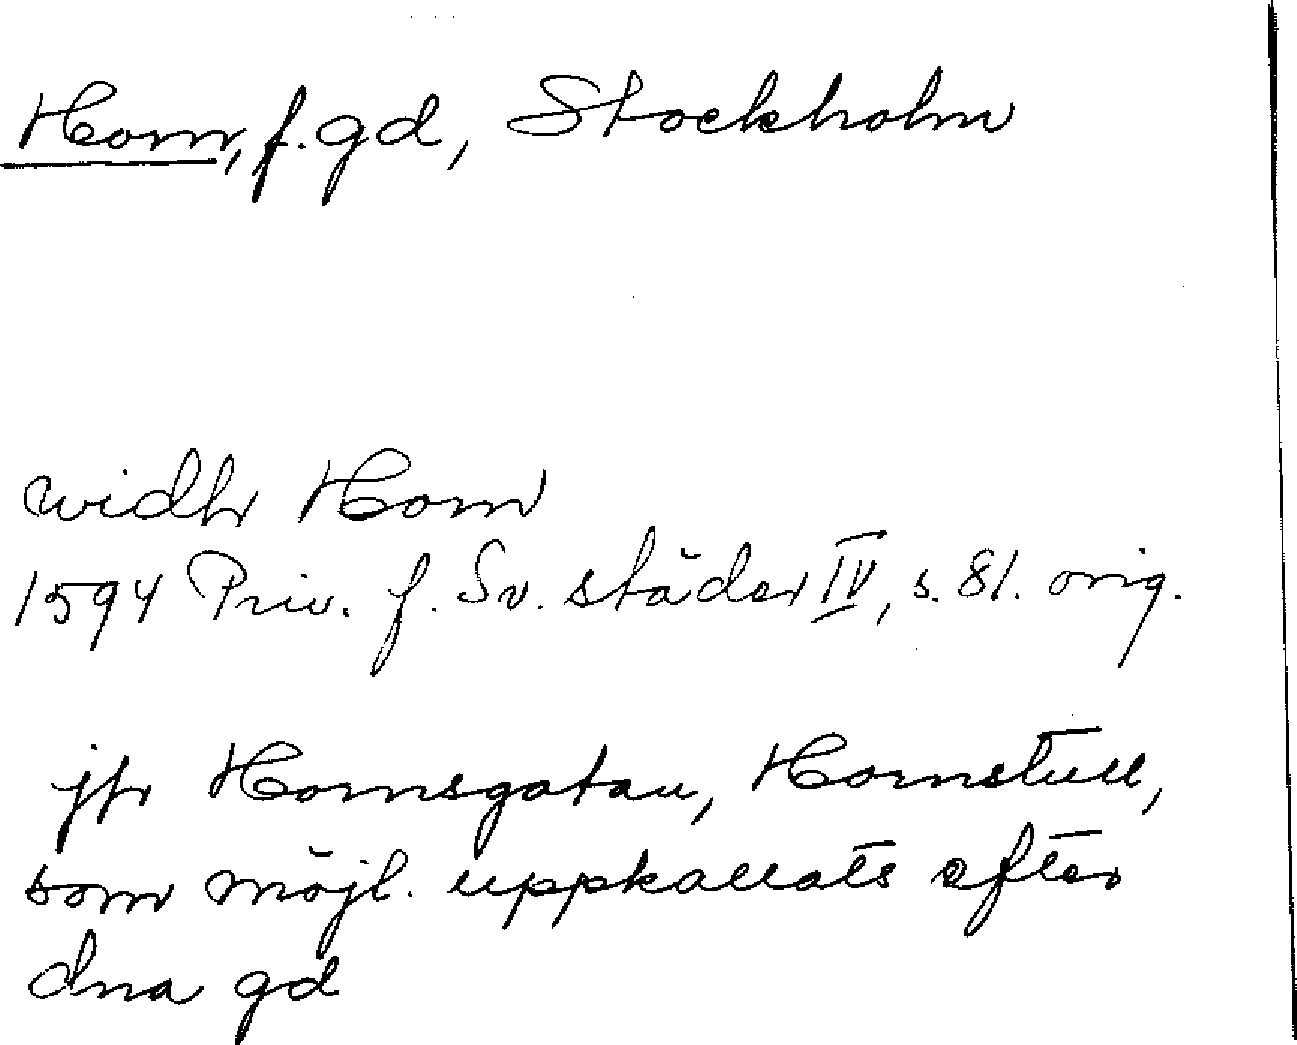 Horn, f. gd, Stockholm
widh Horn
1594 Priv. f. Sv. städer IV, s. 81. orig.
jfr Hornsgatan, Hornstull,
som möjl. uppkallats efter
dna gd